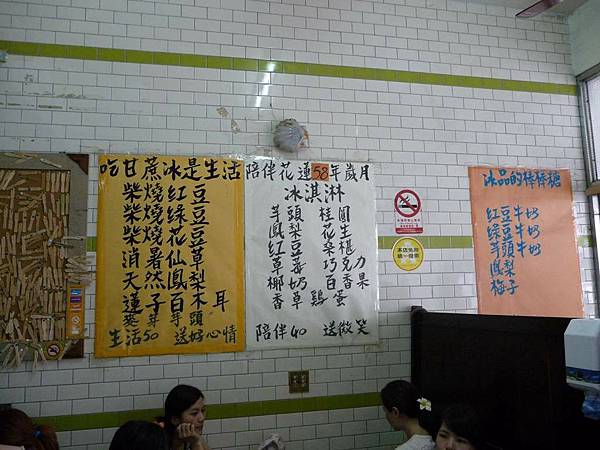 吃甘蔗冰是生活
柴燒紅豆
柴燒綠豆
柴燒花豆
消暑仙草
天然鳳梨
蓮子百木耳
芋頭
生活50 送好心情
陪伴花蓮58年歲月
冰淇淋
芋頭 桂圓
鳳梨 花生
紅豆 桑椹
草莓 巧克力
椰奶 百香果
香草 雞蛋
陪伴40 送微笑
冰品的棒棒糖
紅豆牛奶
綠豆牛奶
芋頭牛奶
鳳梨
梅子